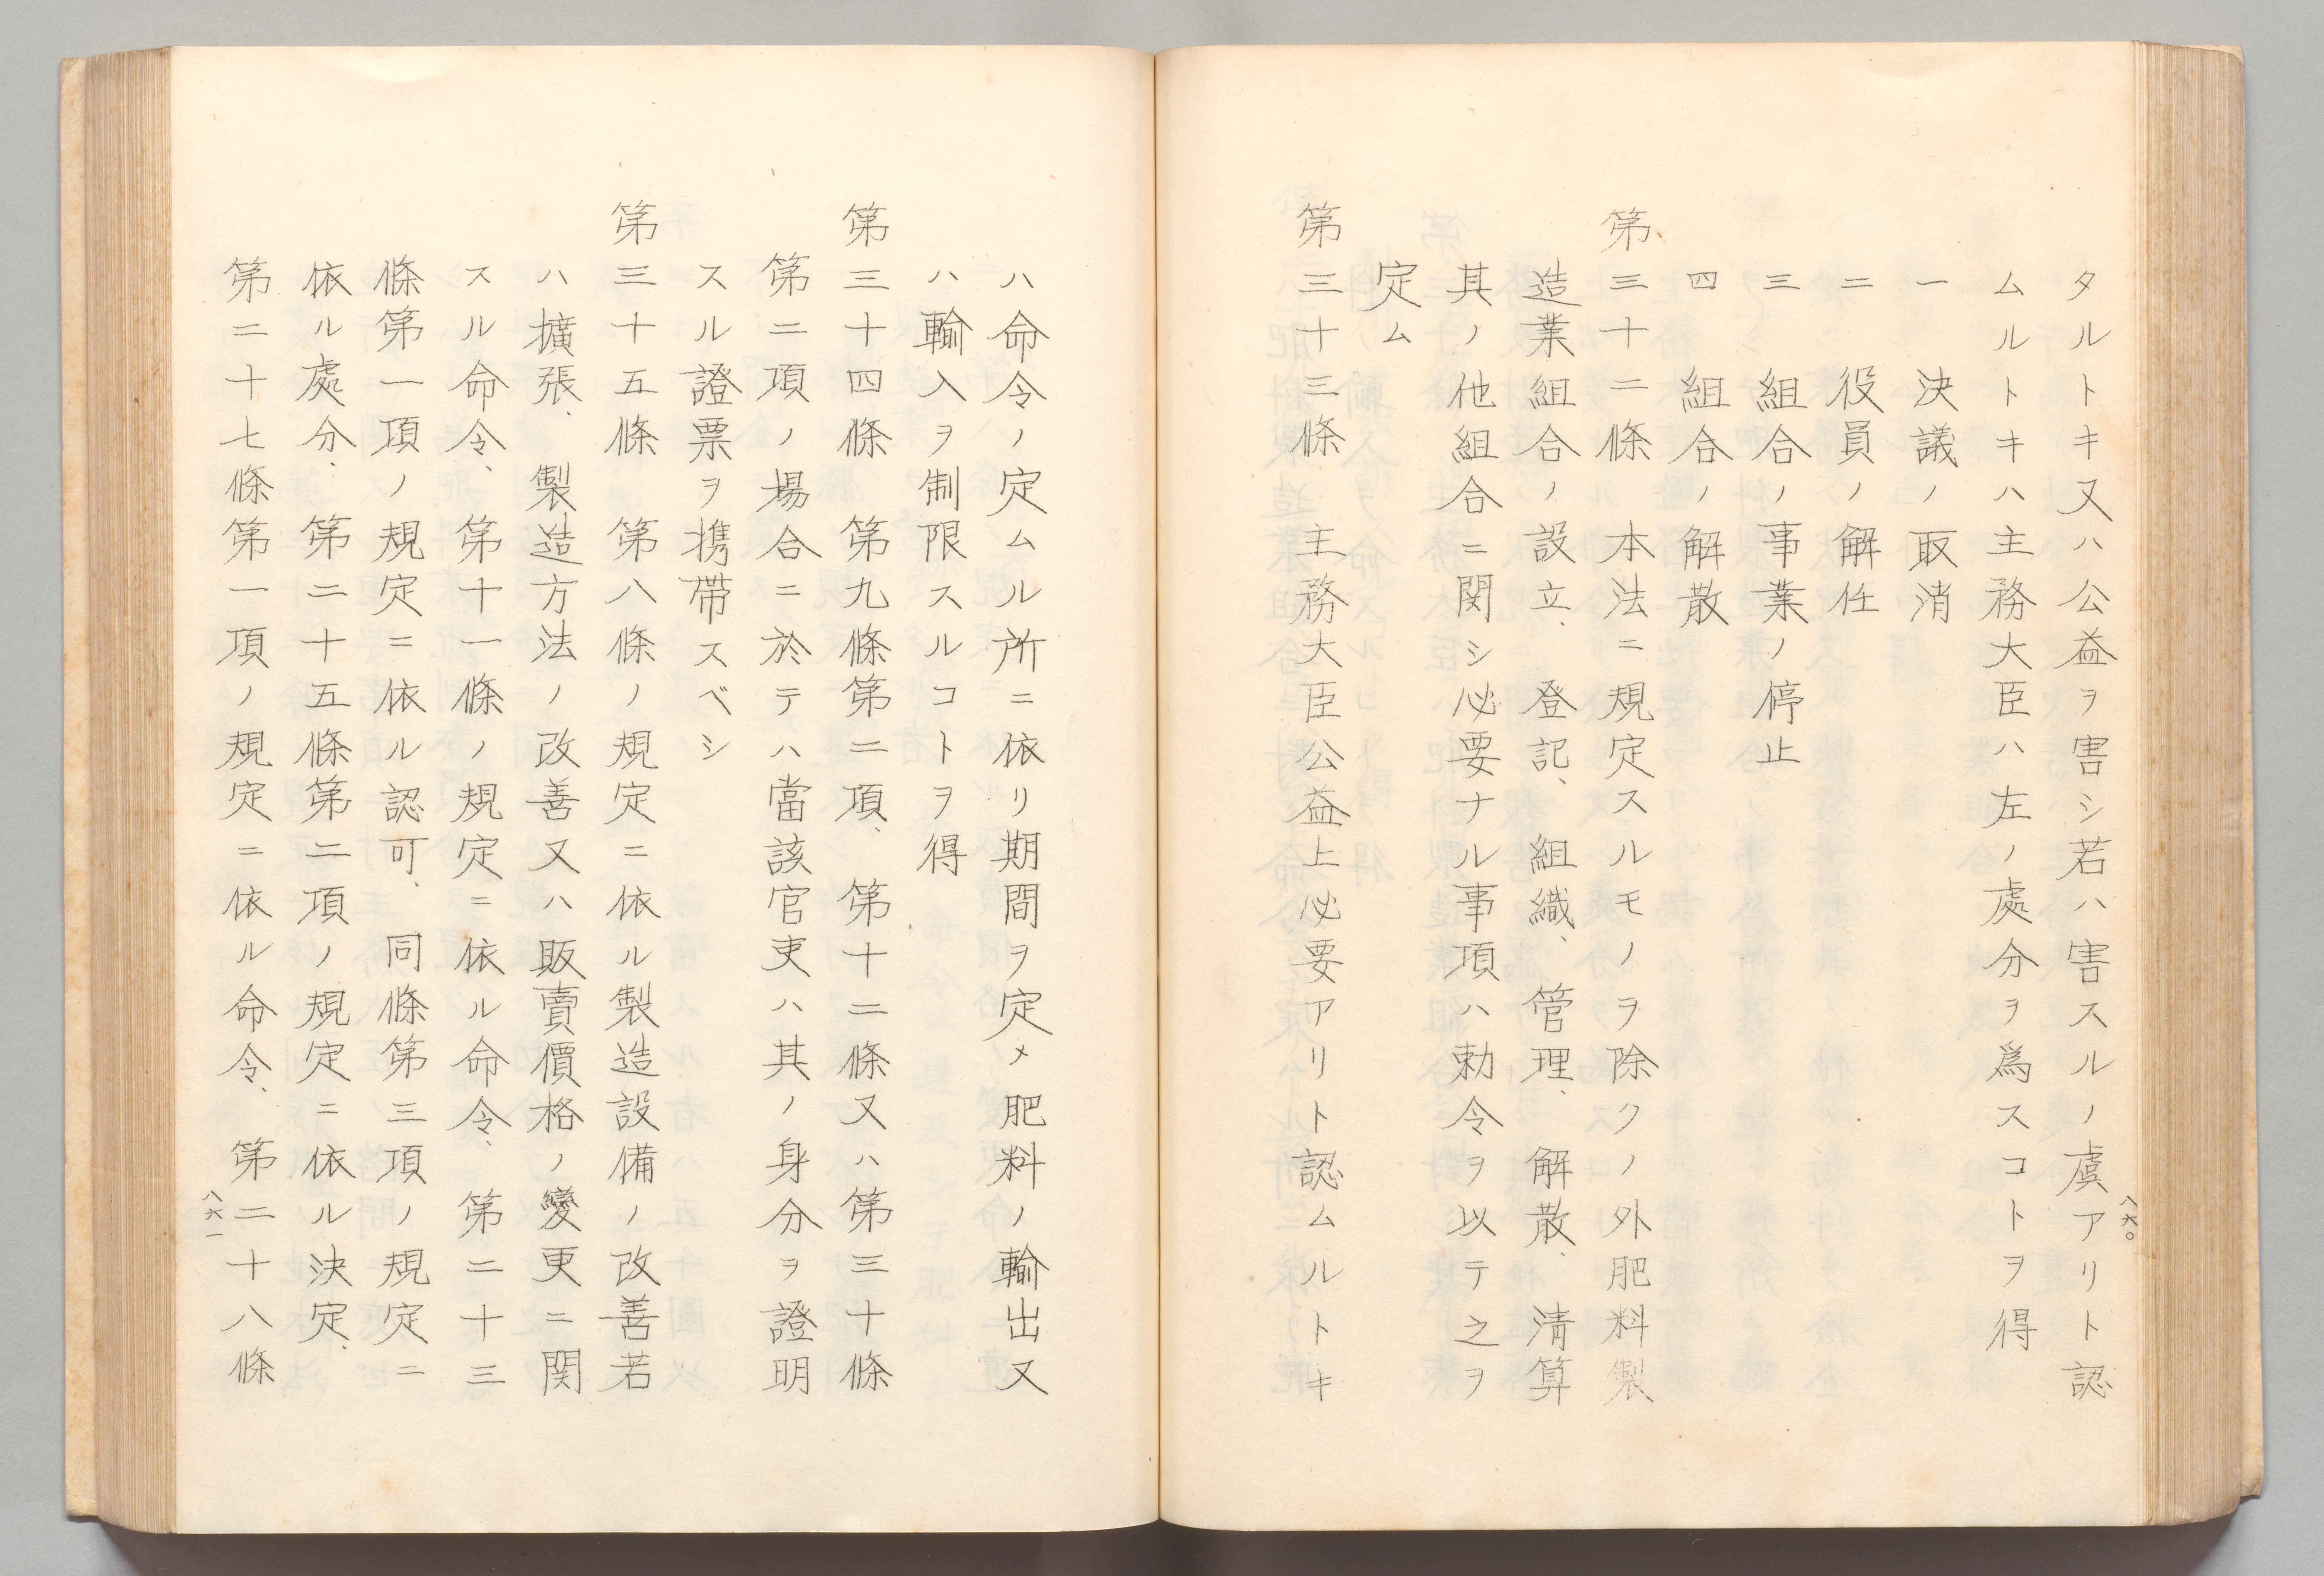 タルトキ又ハ公益ヲ害シ若ハ害スルノ虞アリト認
ムルトキハ主務大臣ハ左ノ處分ヲ爲スコトヲ得
一 決議ノ取消
二 役員ノ解任
三 組合ノ事業ノ停止
四 組合ノ解散
第三十二條 本法ニ規定スルモノヲ除クノ外肥料製
造業組合ノ設立、登記、組織、管理、解散、淸算
其ノ他組合ニ関シ必要ナル事項ハ勅令ヲ以テ之ヲ
定ム
第三十三條 主務大臣公益上必要アリト認ムルトキ
八六〇
ハ命令ノ定ムル所ニ依リ期間ヲ定メ肥料ノ輸出又
ハ輸入ヲ制限スルコトヲ得
第三十四條 第九條第二項、第十二條又ハ第三十條
第二項ノ場合ニ於テハ當該官吏ハ其ノ身分ヲ證明
スル證票ヲ携帶スベシ
第三十五條 第八條ノ規定ニ依ル製造設備ノ改善若
ハ擴張、製造方法ノ改善又ハ販賣價格ノ變更ニ関
スル命令、第十一條ノ規定ニ依ル命令、第二十三
條第一項ノ規定ニ依ル認可、同條第三項ノ規定ニ
依ル處分、第二十五條第二項ノ規定ニ依ル決定、
第二十七條第一項ノ規定ニ依ル命令、第二十八條
八六一